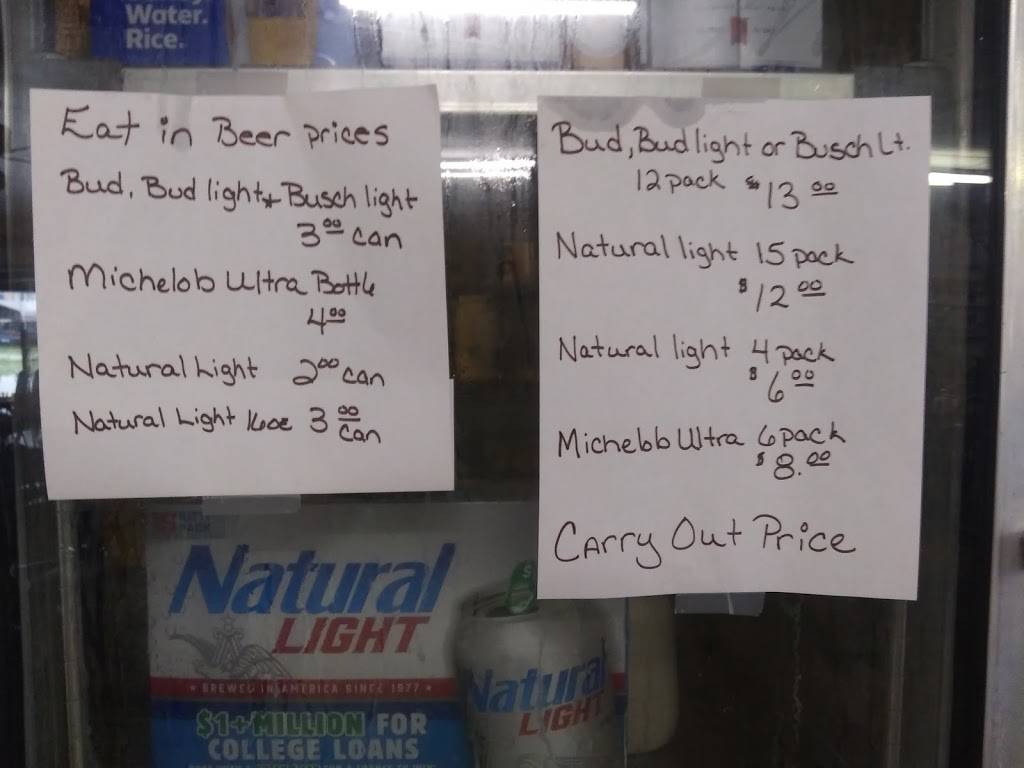 Water.
Rice.
Eat in Beer prices
Bud, Bud light + Busch light
3 00 can
Michelob Ultra Bottle
4 00
Natural Light 2 00 can
Natural Light 16oz 3 00 can
Bud, Bud light or Busch Lt.
12 pack $13 00
Natural light 15 pack
$12 00
Natural light 4 pack
$6 00
Michelob Ultra 6 pack
$8. 00
Carry Out Price
Natural
LIGHT
BREWED IN AMERICA SINCE 1977
$1+MILLION FOR
COLLEGE LOANS
Natural
LIGHT